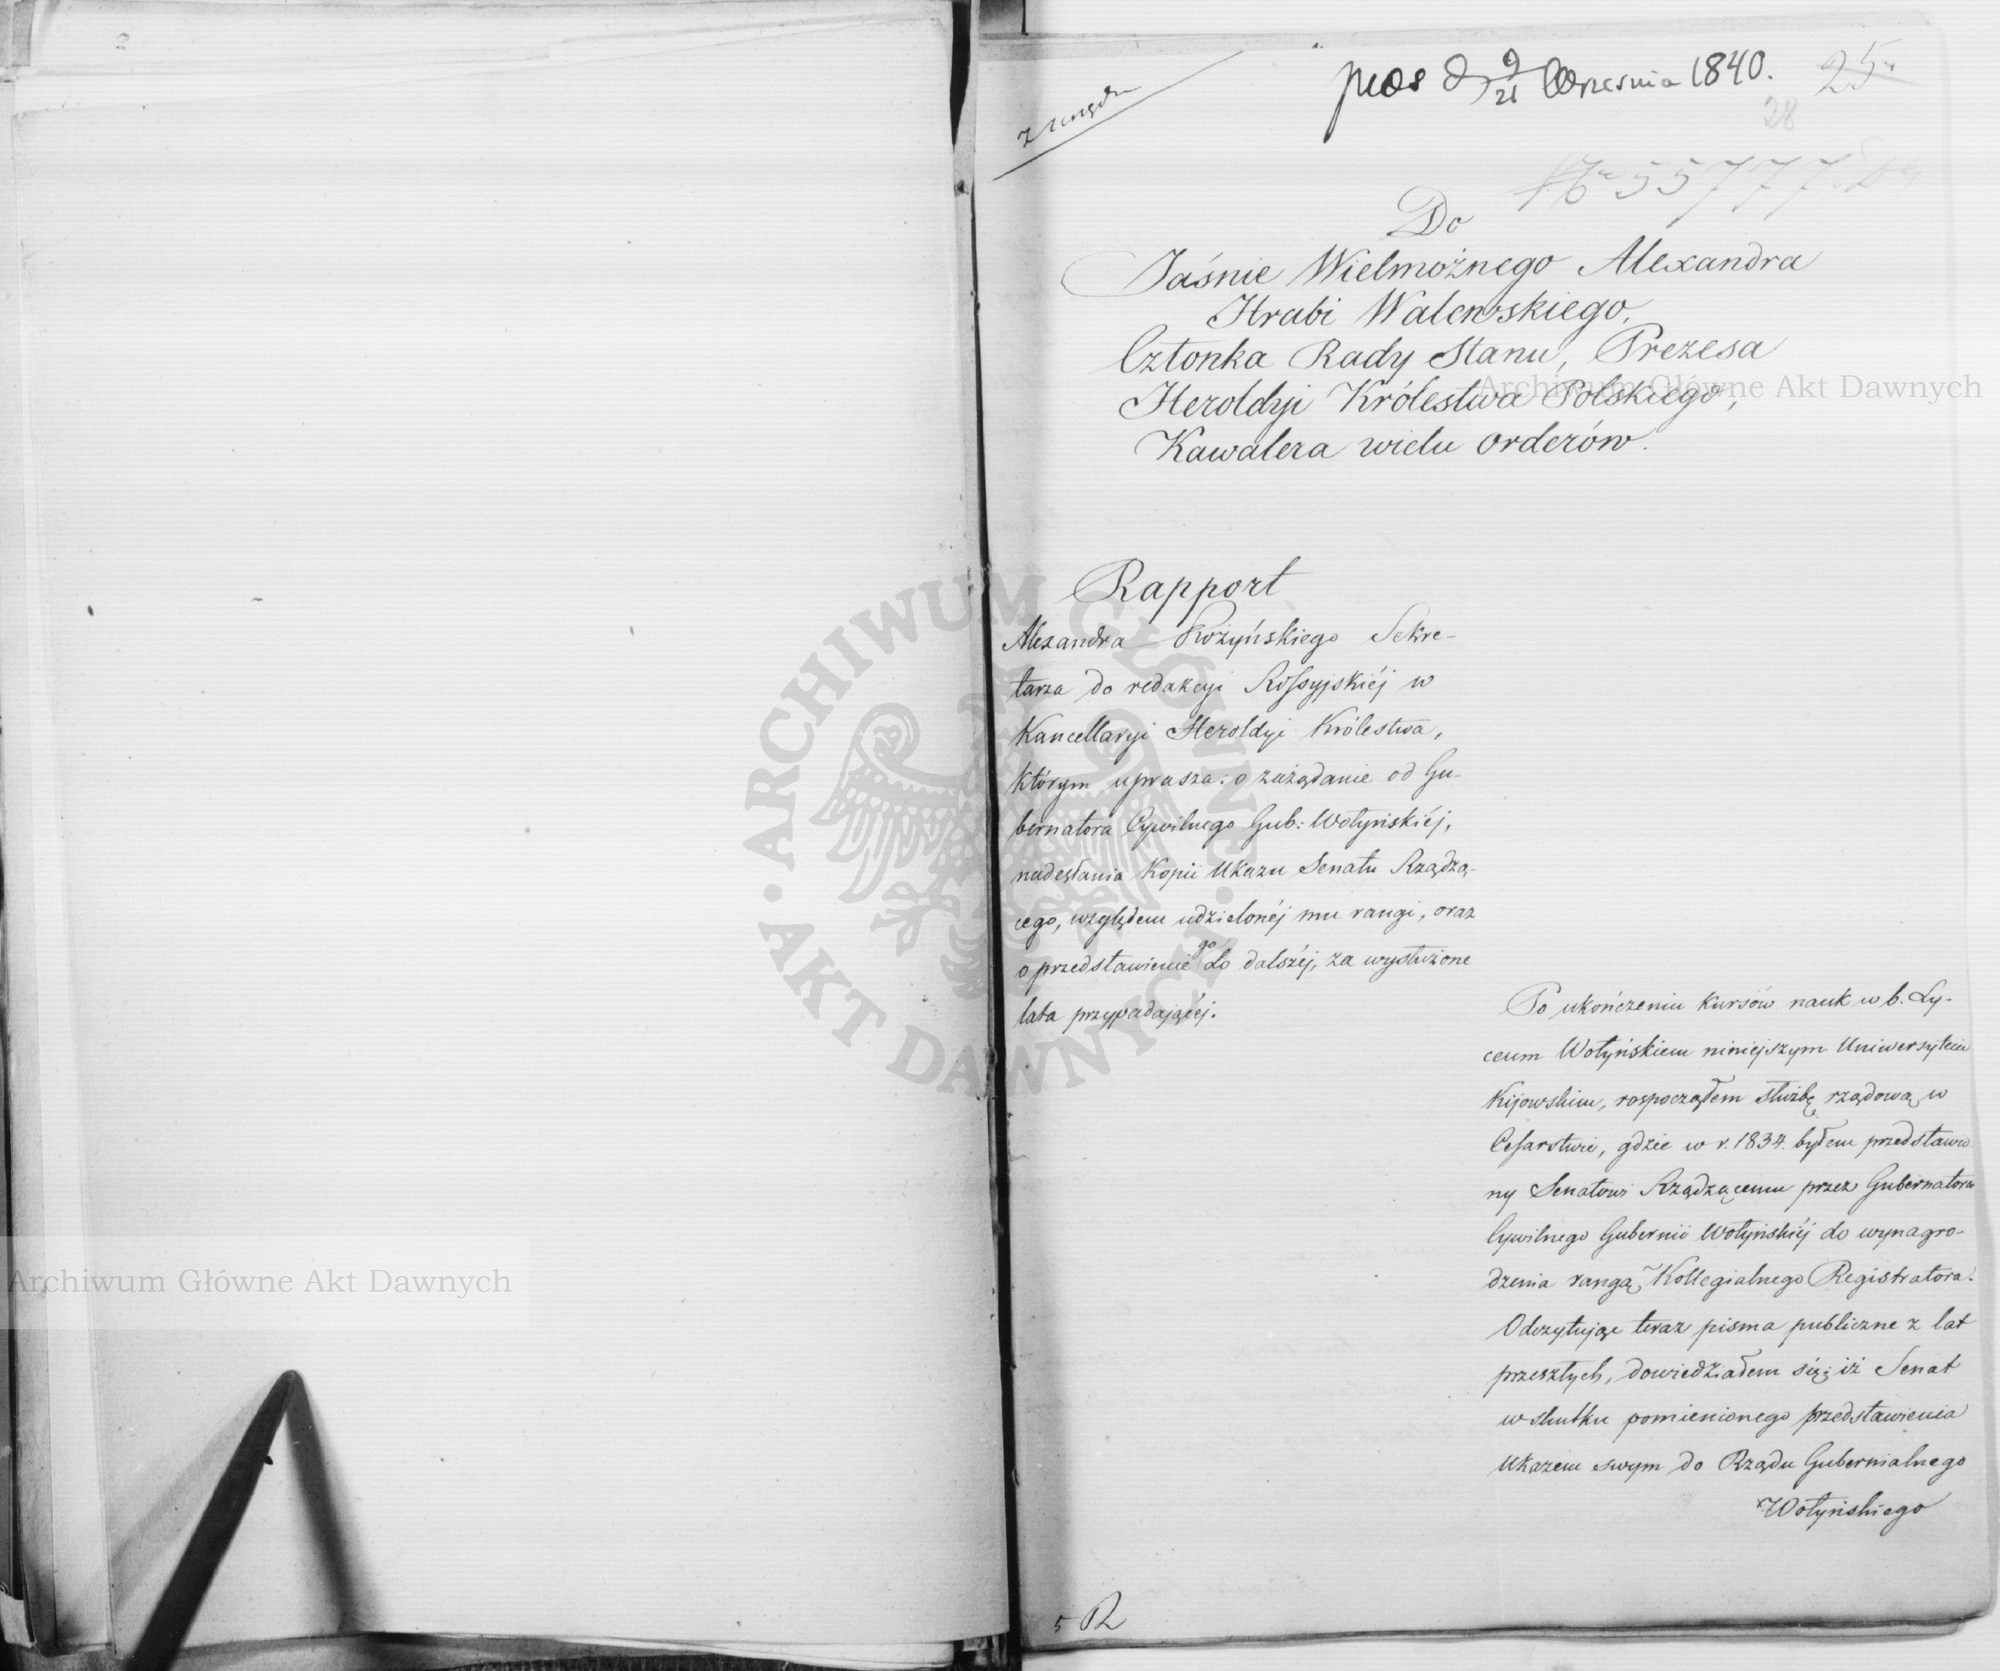 2
z urzędu
pros d 9/21 Września 1840.
25
28
Nr 55777
Do
Jaśnie Wielmożnego Alexandra
Hrabi Walewskiego,
Członka Rady Stanu, Prezesa
Heroldyi Królestwa Polskiego,
Kawalera wielu orderów.
Rapport
Alexandra Kożyńskiego Sekre-
tarza do redakcyi Rossyjskiéj w
Kancellaryi Heroldyi Królestwa,
którym uprasza: o zażądanie od Gu-
bernatora Cywilnego Gub: Wołyńskiéj,
nadesłania Kopii Ukazu Senatu Rządzą-
cego, względem udzielonéj mu rangi, oraz
o przedstawienie go do dalszéj, za wysłużone
lata przypadającéj.
Po ukończeniu kursów nauk w b. Ly-
ceum Wołyńskiem niniejszym Uniwersytecie
Kijowskim, rospocząłem służbę rządową w
Cesarstwie, gdzie w r. 1834. byłem przedstawio
ny Senatowi Rządzącemu przez Gubernatora
Cywilnego Gubernii Wołyńskiéj do wynagro-
dzenia rangą Kollegialnego Registratora.
Odczytując teraz pisma publiczne z lat
przeszłych, dowiedziałem się; iż Senat
w skutku pomienionego przedstawienia
Ukazem swym do Rządu Gubernialnego
Wołyńskiego
5 R
ARCHIWUM GŁÓWNE AKT DAWNYCH
Archiwum Główne Akt Dawnych
Archiwum Główne Akt Dawnych